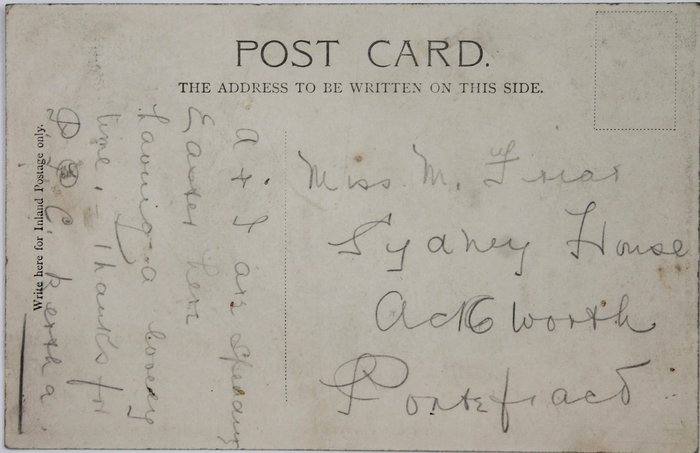 POST CARD.
THE ADDRESS TO BE WRITTEN ON THIS SIDE.
Write here for Inland Postage only.
A & I are spending
Easter here
having a lovely
time. - Thanks for
P.C. Bertha.
Miss M. Friar
Sydney House
Ackworth
Pontefract